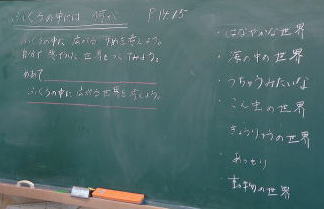 ふくろの中には 何が P14.15
ふくろの中に 広がる 世界を考えよう。
自分で 考えた 世界を つくってみよう。
めあて
ふくろの中に 広がる世界を 考えよう。
・はなやかな世界
・海の中の世界
・うちゅうみたいな
・こん虫の世界
・きょうりゅうの世界
・あっせり
・動物の世界